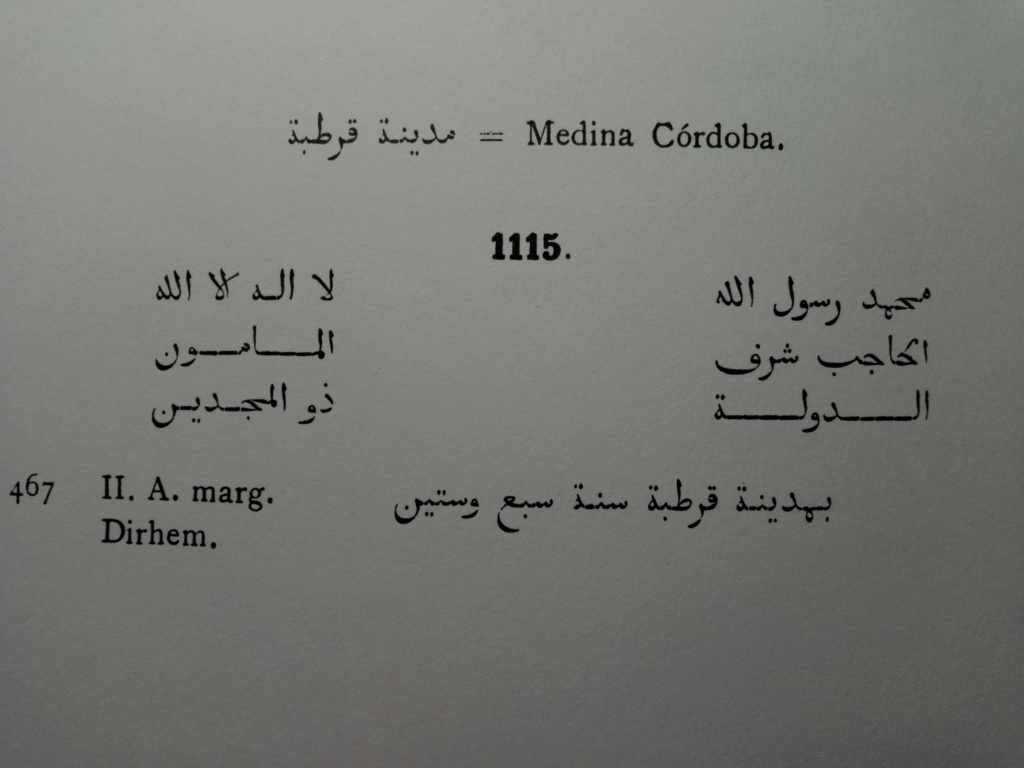 مدينة قرطبة = Medina Córdoba.
1115.
لا اله الا الله
المامون
ذو المجدين
محمد رسول الله
الحاجب شرف
الدولة
467 II. A. marg. بمدينة قرطبة سنة سبع وستين
Dirhem.